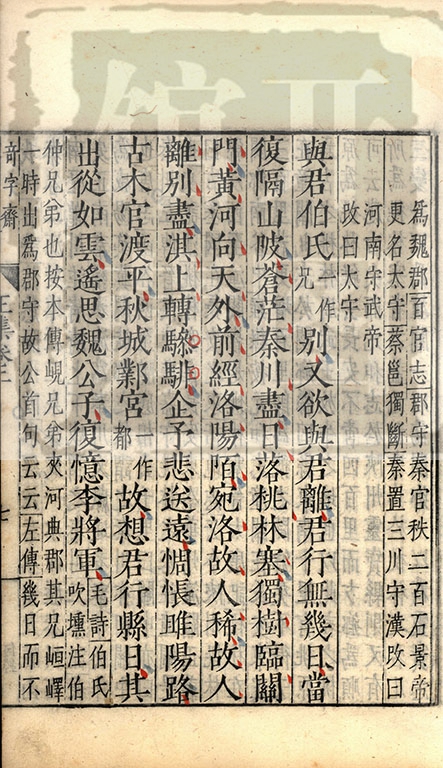 爲魏郡百官志郡守秦官秩二百石景帝
更名太守蔡邕獨斷秦置三川守漢改曰
河南守武帝
改曰太守
與君伯氏一作兄別又欲與君離君行無幾日當
復隔山陂蒼茫秦川盡日落桃林塞獨樹臨關
門黃河向天外前經洛陽陌宛洛故人稀故人
離別盡淇上轉驂騑企予悲送遠惆悵睢陽路
古木官渡平秋城鄴宮一作都故想君行縣日其
出從如雲遙思魏公子復憶李將軍毛詩伯氏吹壎注伯
仲兄弟也按本傳峴兄弟夾河典郡其兄峘嶧
一時出爲郡守故公首句云云左傳幾日而不
奇字齋